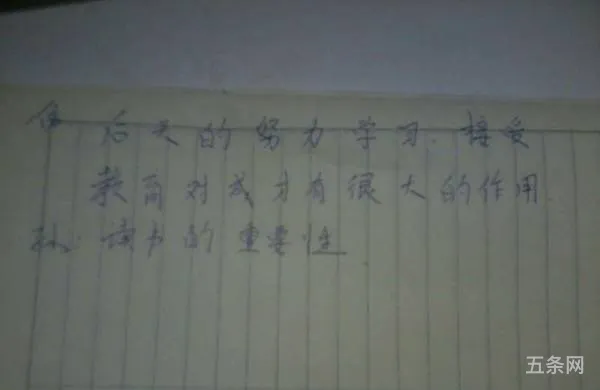 伤 后天的努力学习.接受
教育对成才有很大的作用.
孙:读书的重要性
五条网